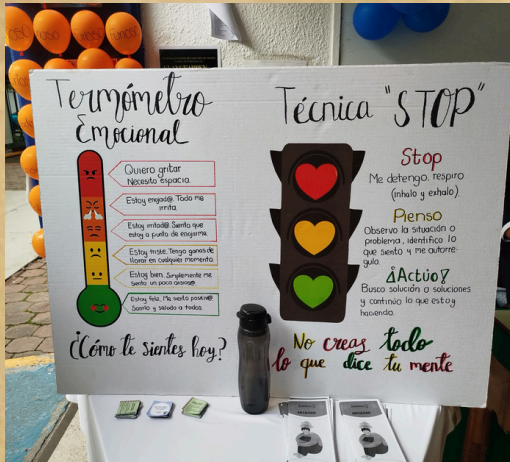 Termómetro
Emocional
Quiero gritar
Necesito espacio.
Estoy enojad@. Todo me
irrita.
Estoy irritad@. Siento que
estoy a punto de enojarme.
Estoy triste. Tengo ganas de
llorar en cualquier momento.
Estoy bien. Simplemente me
siento un poco
Estoy feliz. Me siento positiv@
Sonrío y saludo a todos.
¿Cómo te sientes hoy?
Técnica "STOP"
Stop
Me detengo, respiro
(inhalo y exhalo).
Pienso
Observo la situación o
problema, identifico lo
que siento y me autorre-
gulo.
¡Actúo!
Busco solución o soluciones
y continúo lo que estoy
haciendo.
No creas todo
lo que dice tu mente